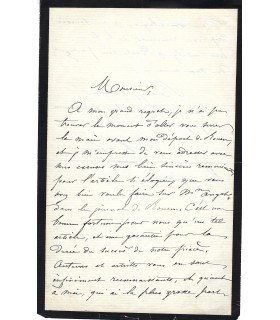 Monsieur,
A mon grand regret, je n'ai pu
trouver le moment d'aller vous serrer
la main avant mon départ de Rouen,
et je m'empresse de vous adresser avec
mes excuses mes bien sincères remerciements
pour l'article si élogieux que vous
avez bien voulu faire sur Mme
dans le journal de Rouen. C'est une
bonne fortune pour nous qu'un tel
article, et une garantie pour la
Durée du succès de notre pièce.
Auteurs et artistes vous en sont
infiniment reconnaissants, et quant
à moi, qui ai la plus grosse part